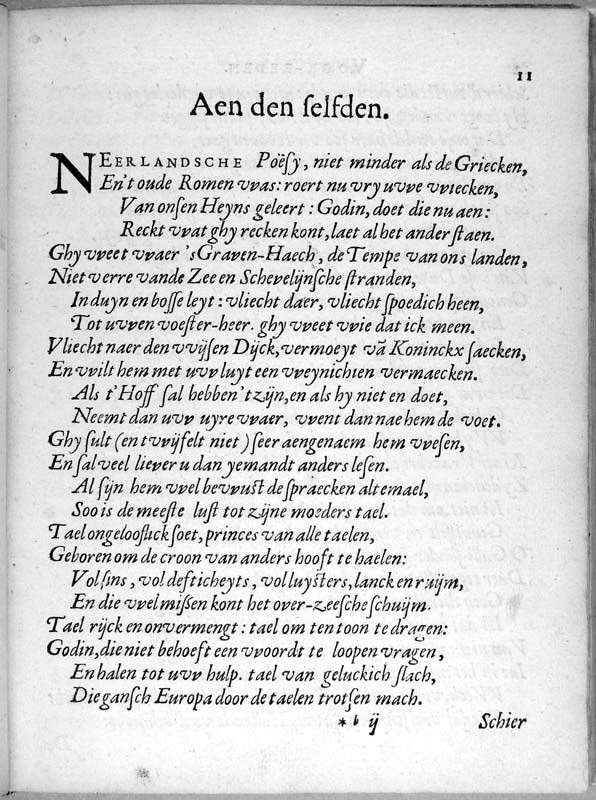 11
Aen den ſelfden.
NEERLANDSCHE Poëſy, niet minder als de Griecken,
En't oude Romen vvas: roert nu vry uvve vviecken,
Van onſen Heyns geleert: Godin, doet die nu aen:
Reckt vvat ghy recken kont, laet al het ander ſtaen.
Ghy vveet vvaer 'sGraven-Haech, de Tempe van ons landen,
Niet verre vande Zee en Schevelijnſche ſtranden,
In duyn en boſſe leyt: vliecht daer, vliecht ſpoedich heen,
Tot uvven voeſter-heer. ghy vveet vvie dat ick meen.
Vliecht naer den vvijſen Dijck, vermoeyt vã Koninckx ſaecken,
En vvilt hem met uvv luyt een vveynichien vermaecken.
Als t'Hoff ſal hebben't zijn, en als hy niet en doet,
Neemt dan uvv uyre vvaer, vvent dan nae hem de voet.
Ghy ſult (en tvvijfelt niet) ſeer aengenaem hem vveſen,
En ſal veel liever u dan yemandt anders leſen.
Al ſijn hem vvel bevvuſt de ſpraecken altemael,
Soo is de meeſte luſt tot zijne moeders tael.
Tael ongelooflick ſoet, princes van alle taelen,
Geboren om de croon van anders hooft te haelen:
Vol ſins, vol defticheyts, vol luyſters, lanck en ruijm,
En die vvel miſſen kont het over-zeeſche ſchuijm.
Tael rijck en onvermengt: tael om ten toon te dragen:
Godin, die niet behoeft een vvoordt te loopen vragen,
En halen tot uvv hulp. tael van geluckich ſlach,
Die ganſch Europa door de taelen trotſen mach.
* b ij Schier